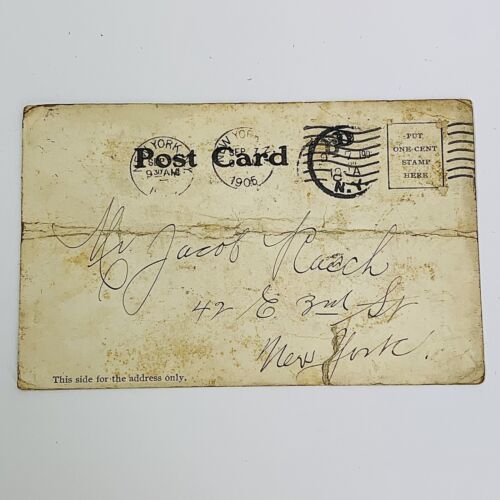 Post Card
NEW YORK
9 30 AM
NEW YORK
1906
N.Y.
PUT
ONE-CENT
STAMP
HERE
Mr. Jacob Rasch
42 E 3rd St
New York.
This side for the address only.